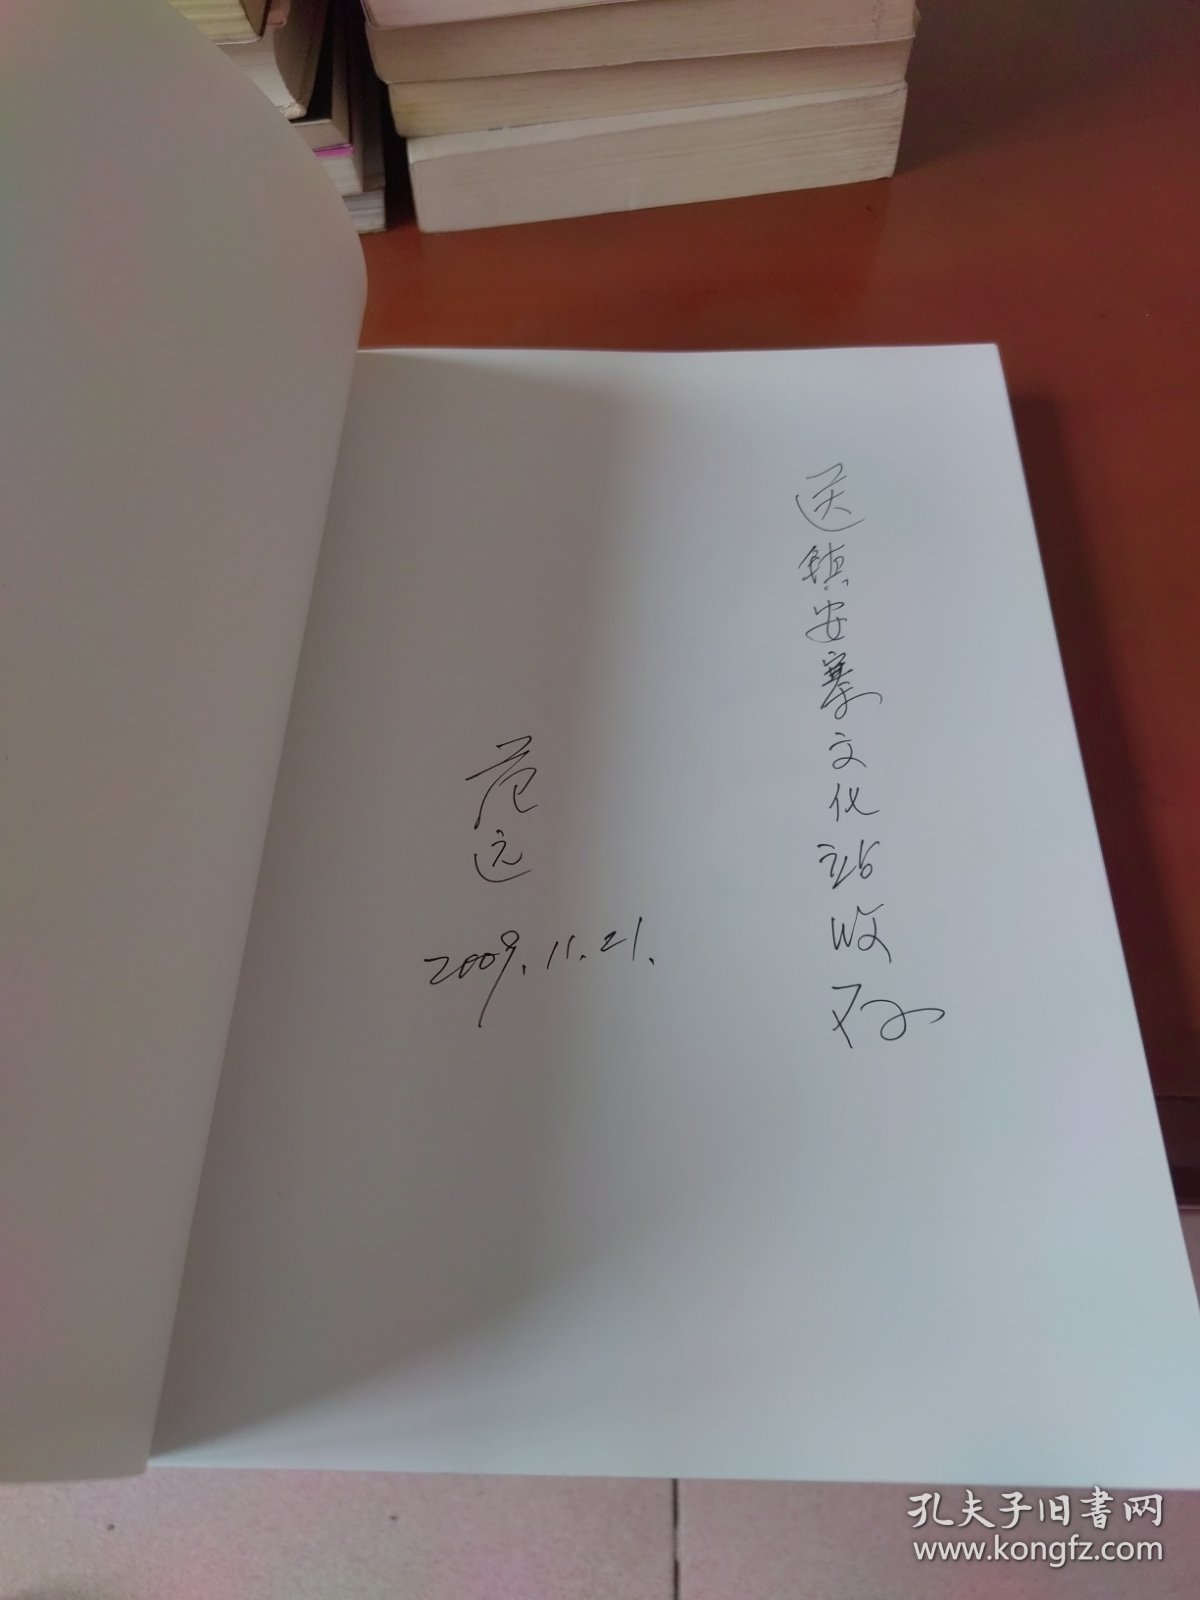 送镇安寨文化站收存
范远
2009.11.21.
孔夫子旧书网
www.kongfz.com